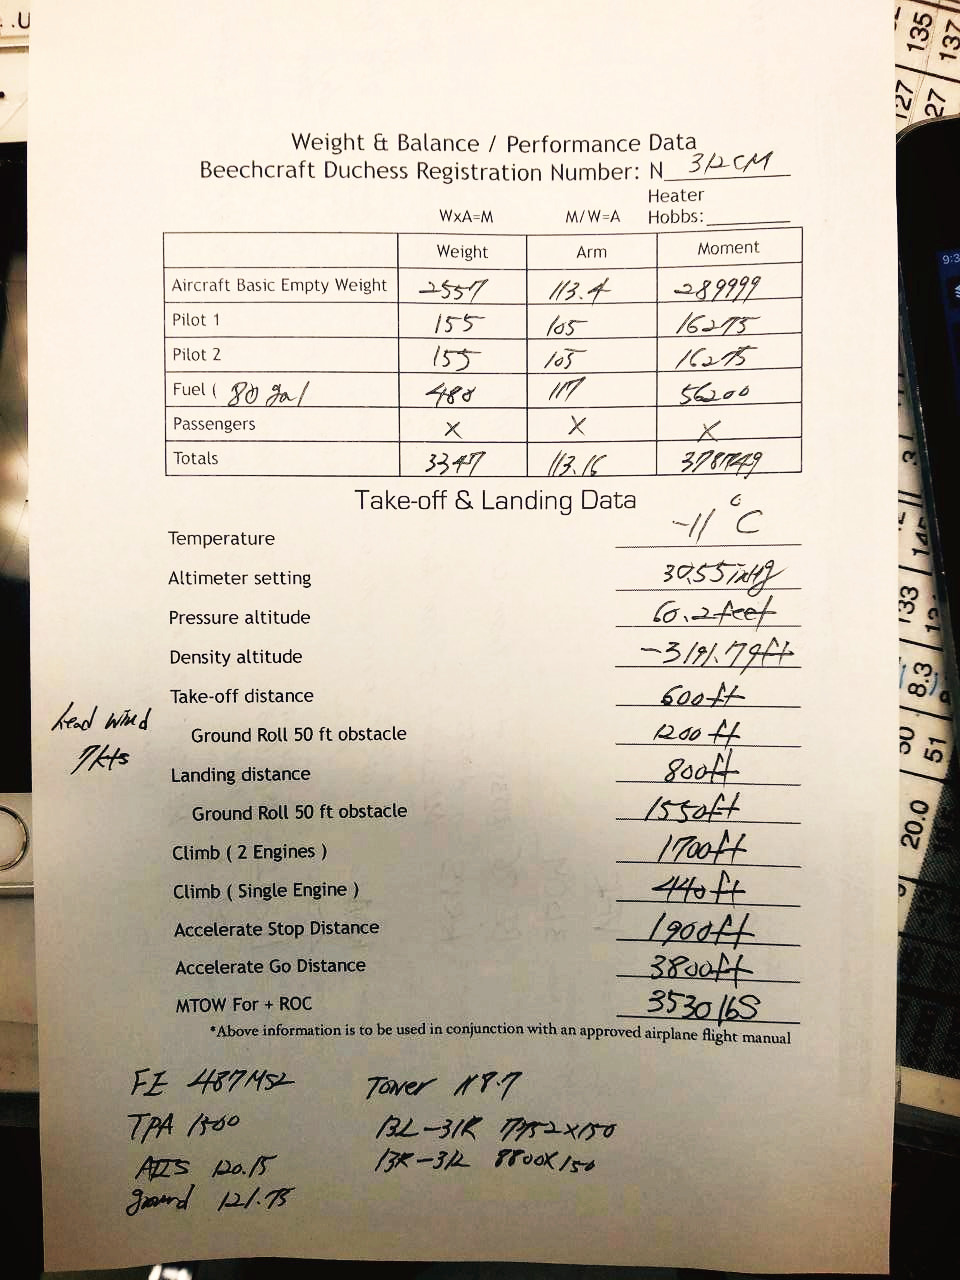 Weight & Balance / Performance Data
Beechcraft Duchess Registration Number: N 312CM
Heater
WxA=M M/W=A Hobbs:
Weight Arm Moment
Aircraft Basic Empty Weight 2557 113.4 289999
Pilot 1 155 105 16275
Pilot 2 155 105 16275
Fuel ( 80 gal 480 117 56200
Passengers X X X
Totals 3347 113.16 378749
Take-off & Landing Data
Temperature -11°C
Altimeter setting 30.55 inHg
Pressure altitude 60.2 feet
Density altitude -3191.79ft
Take-off distance 600ft
head wind
7kts
Ground Roll 50 ft obstacle 1200 ft
Landing distance 800ft
Ground Roll 50 ft obstacle 1550ft
Climb ( 2 Engines ) 1700ft
Climb ( Single Engine ) 440ft
Accelerate Stop Distance 1900ft
Accelerate Go Distance 3800ft
MTOW For + ROC 3530 lbs
*Above information is to be used in conjunction with an approved airplane flight manual
FE 487 MSL Tower 118.7
TPA 1500 13L-31R 7752x150
ATIS 120.15 13R-31L 8800x150
ground 121.75
135
137
127
27
133
8.3
50
51
20.0
9:3